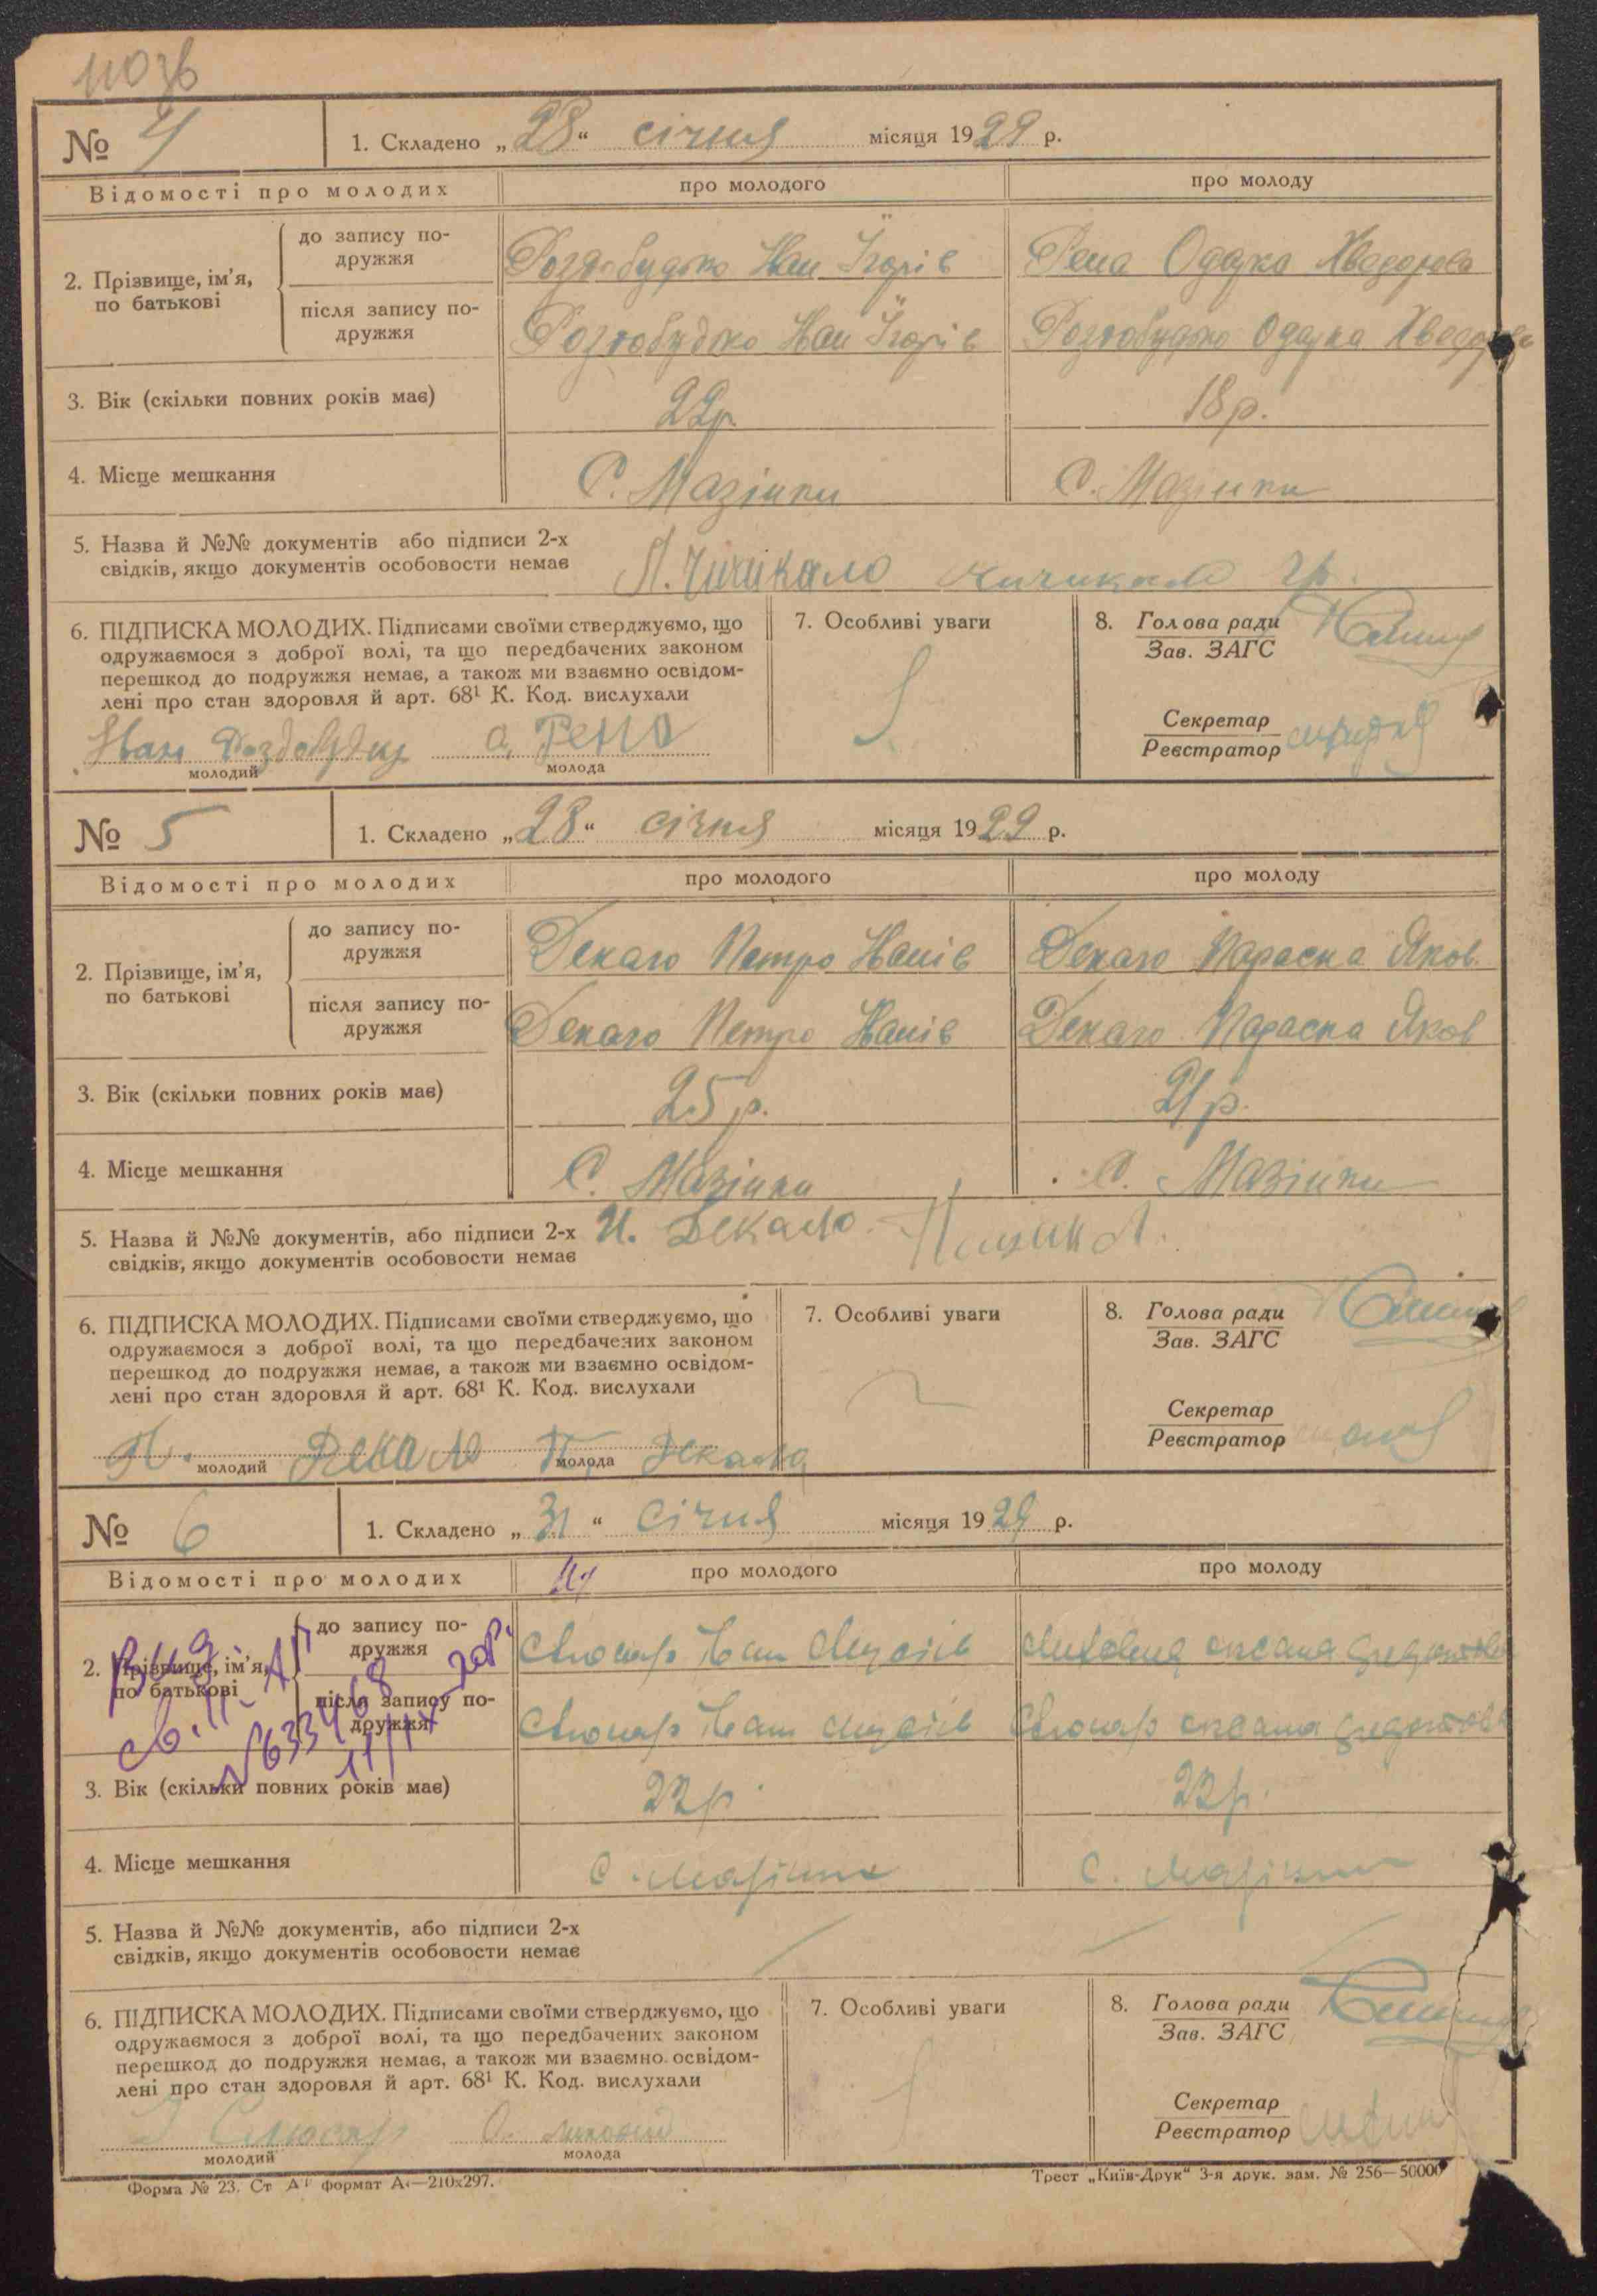 № 4 1. Складено „28“ січня місяця 1929 р.
Відомості про молодих про молодого про молоду
2. Прізвище, ім’я, по батькові
до запису подружжя Роздобудько Іван Ігорів Рена Одарка Хведорова
після запису подружжя Роздобудько Іван Ігорів Роздобудько Одарка Хведорова
3. Вік (скільки повних років має) 22р. 18р.
4. Місце мешкання С. Мазінки С. Мазінки
5. Назва й №№ документів або підписи 2-х
свідків, якщо документів особовости немає Чичикало Чичикало Гр.
6. ПІДПИСКА МОЛОДИХ. Підписами своїми стверджуємо, що
одружаємося з доброї волі, та що передбачених законом
перешкод до подружжя немає, а також ми взаємно освідом-
лені про стан здоровля й арт. 68¹ К. Код. вислухали
Іван Роздобудько О. Рена
молодий молода
7. Особливі уваги
8. Голова ради
Зав. ЗАГС
Секретар
Реєстратор
№ 5 1. Складено „28“ січня місяця 1929 р.
Відомості про молодих про молодого про молоду
2. Прізвище, ім’я, по батькові
до запису подружжя Декало Петро Іванів Декало Параска Яков.
після запису подружжя Декало Петро Іванів Декало Параска Яков
3. Вік (скільки повних років має) 25р. 21р.
4. Місце мешкання С. Мазінки С. Мазінки
5. Назва й №№ документів, або підписи 2-х И. Декало
свідків, якщо документів особовости немає
6. ПІДПИСКА МОЛОДИХ. Підписами своїми стверджуємо, що
одружаємося з доброї волі, та що передбачених законом
перешкод до подружжя немає, а також ми взаємно освідом-
лені про стан здоровля й арт. 68¹ К. Код. вислухали
П. Декало П. Декало
молодий молода
7. Особливі уваги
8. Голова ради
Зав. ЗАГС
Секретар
Реєстратор
№ 6 1. Складено „31“ Січня місяця 1929 р.
Відомості про молодих про молодого про молоду
2. Прізвище, ім’я, по батькові
до запису подружжя Слюсар Іван оксана
після запису подружжя Слюсар Іван Слюсар оксана
3. Вік (скільки повних років має) 22р. 22р.
4. Місце мешкання с. Мазінки с. Мазінки
5. Назва й №№ документів, або підписи 2-х
свідків, якщо документів особовости немає
6. ПІДПИСКА МОЛОДИХ. Підписами своїми стверджуємо, що
одружаємося з доброї волі, та що передбачених законом
перешкод до подружжя немає, а також ми взаємно освідом-
лені про стан здоровля й арт. 68¹ К. Код. вислухали
Слюсар О.
молодий молода
7. Особливі уваги
8. Голова ради
Зав. ЗАГС
Секретар
Реєстратор
Форма № 23. Ст формат А₄—210х297. Трест „Київ-Друк“ 3-я друк. зам. № 256—50000